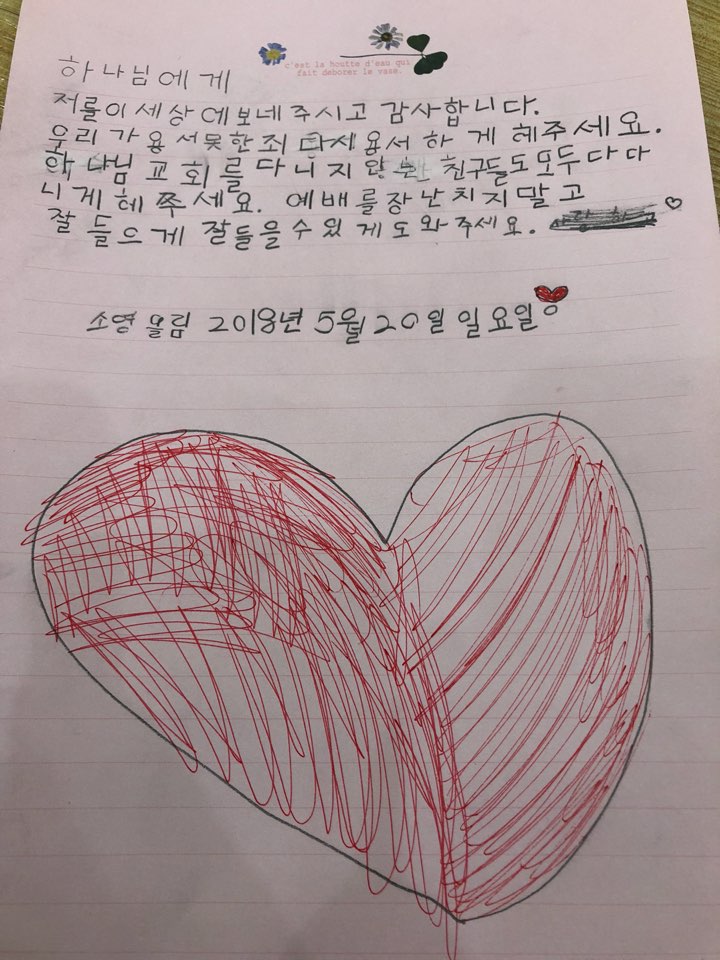 c'est la houtte d'eau qui
fait deborer le vase.
하나님에게
저를이세상에보네주시고 감사합니다.
우리가용서못한죄 다시용서하게헤주세요.
하나님교회를다니지않는 친구들도모두다다
니게헤 쭈세요. 예배를장난치지말고
잘들으게 잘들을수있게도와주세요.
소영올림 2018년 5월 20일 일요일